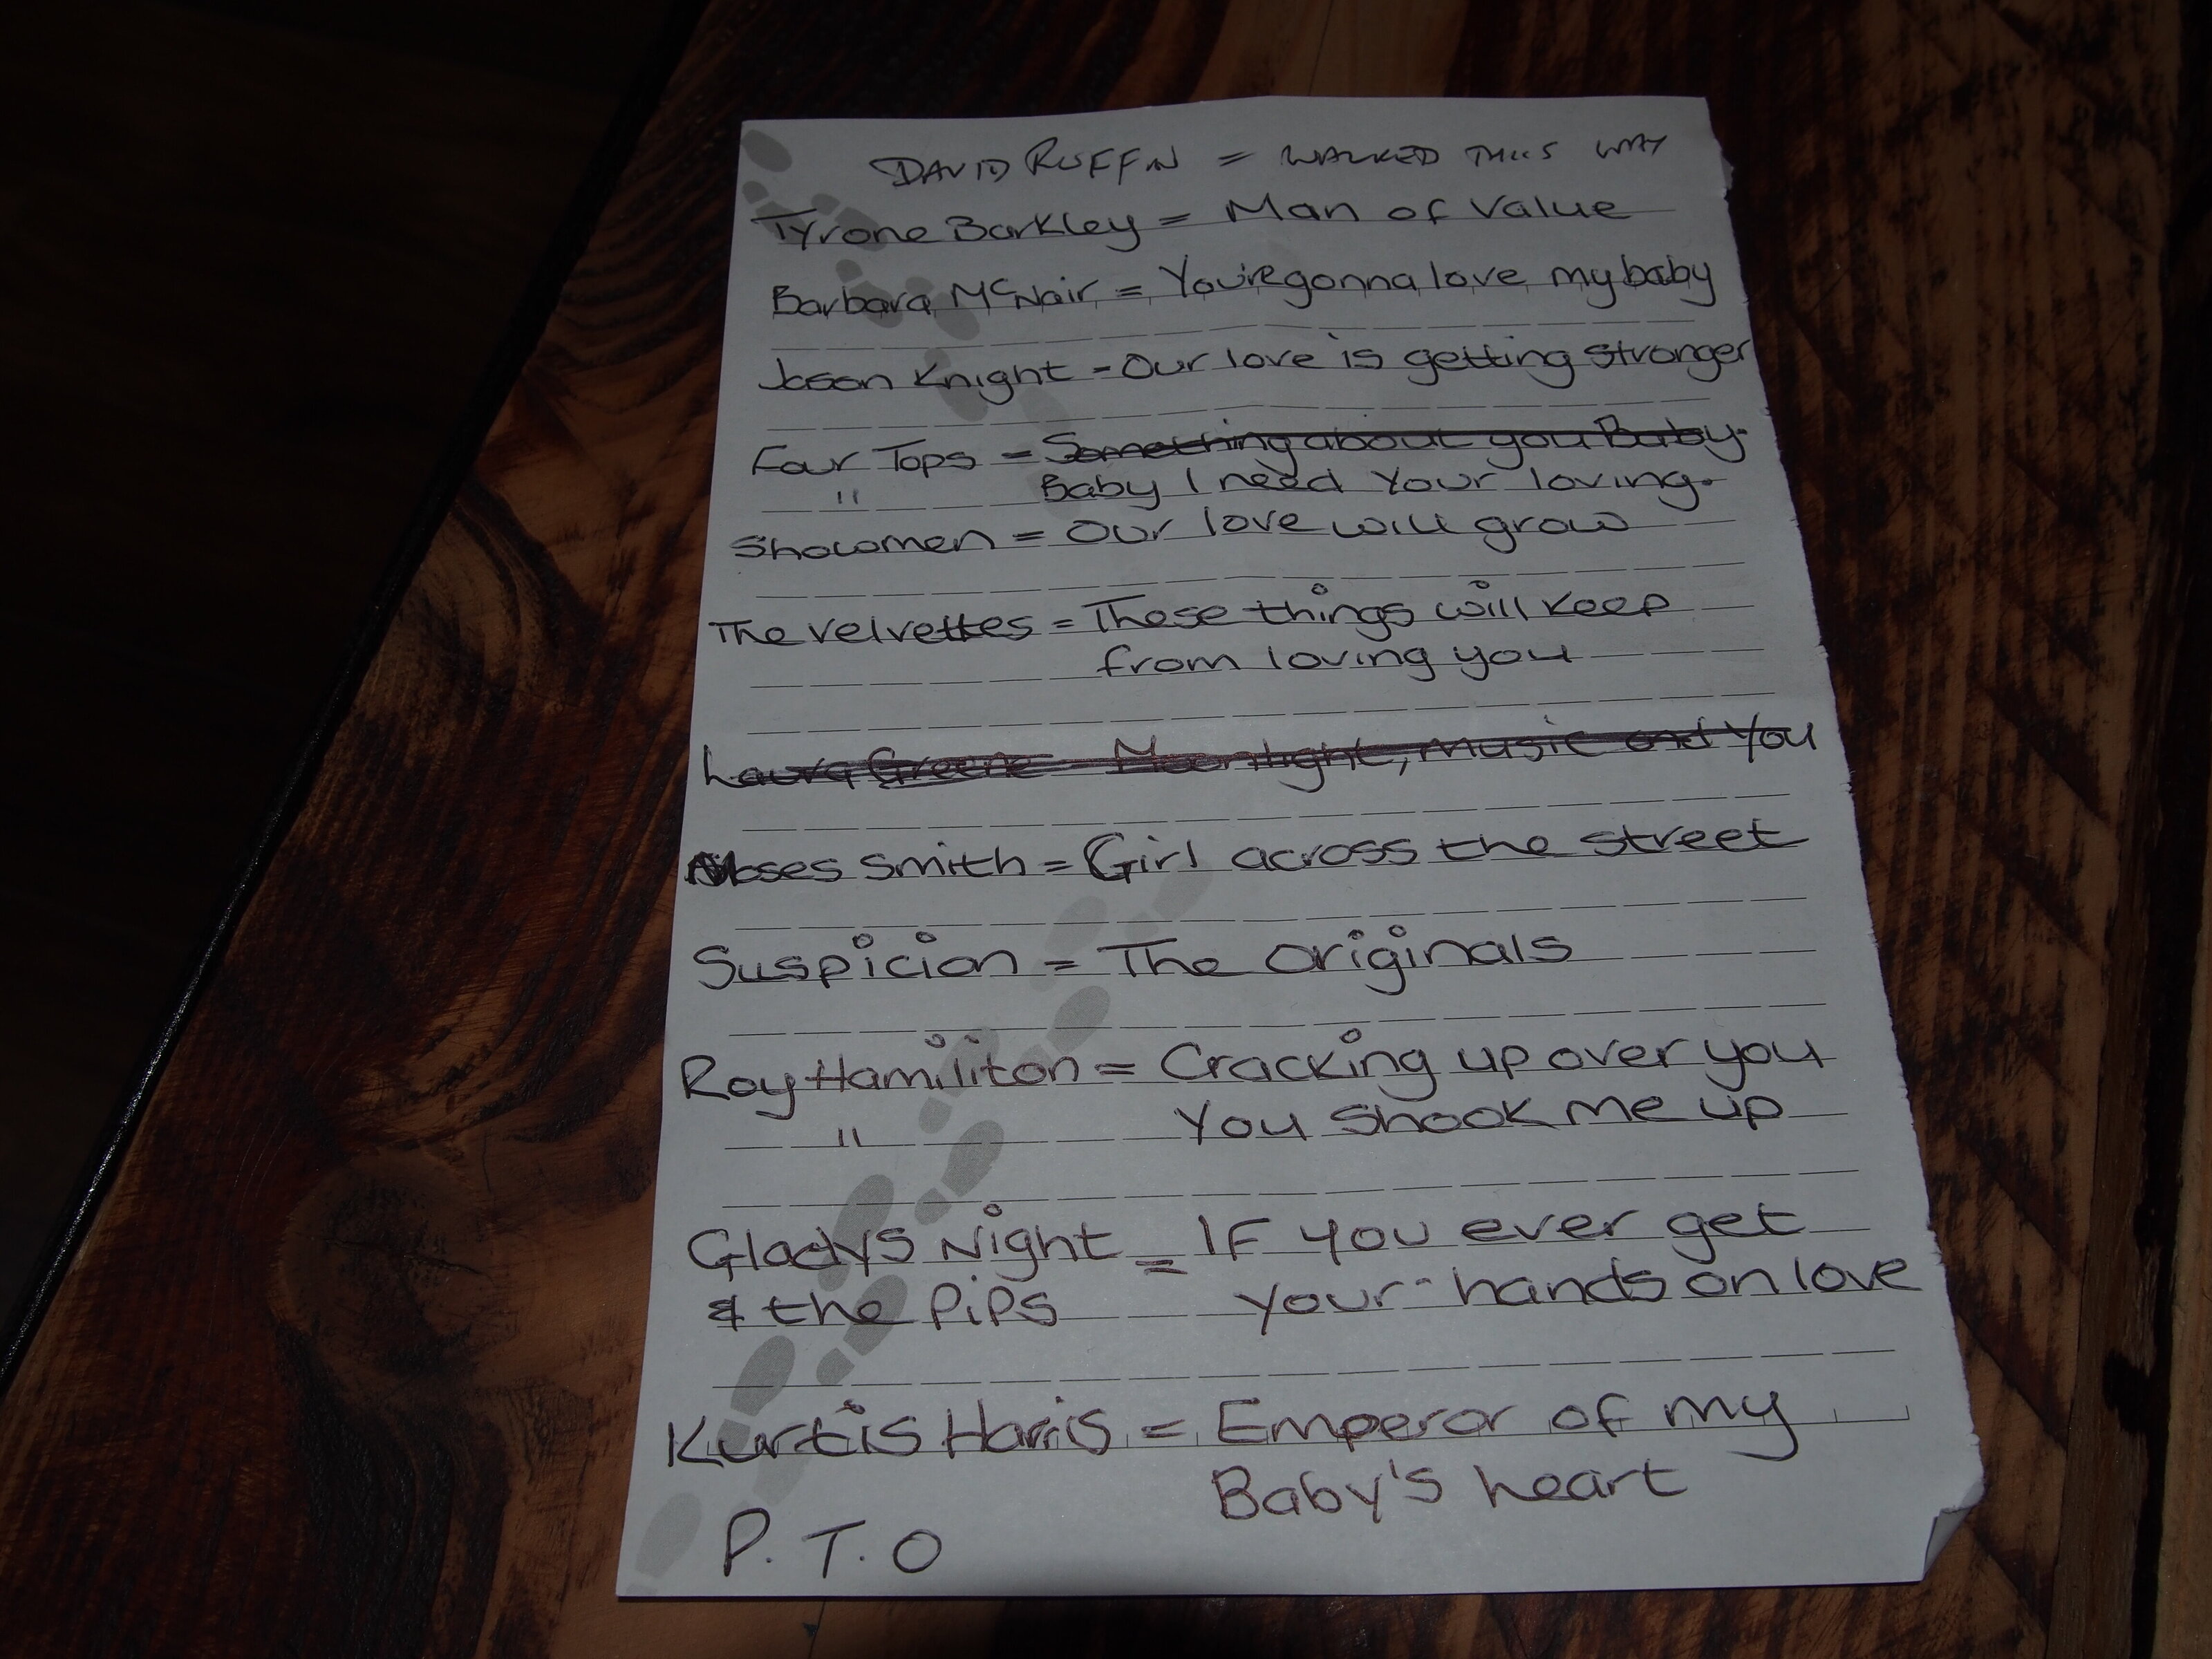 DAVID RUFFIN = WALKED THIS WAY
Tyrone Barkley = Man of Value
Barbara McNair = You're gonna love my baby
Jason Knight = Our love is getting stronger
Four Tops = Something about you Baby.
" Baby I need Your loving.
Showmen = Our love will grow
The Velvettes = These things will keep
from loving you
Laura Greene = Moonlight, music and You
Moses Smith = Girl across the street
Suspicion = The Originals
Roy Hamiliton = Cracking up over you
" You Shook me up
Gladys Night = IF you ever get
& the PiPs your hands on love
Kurtis Harris = Emperor of my
Baby's heart
P.T.O